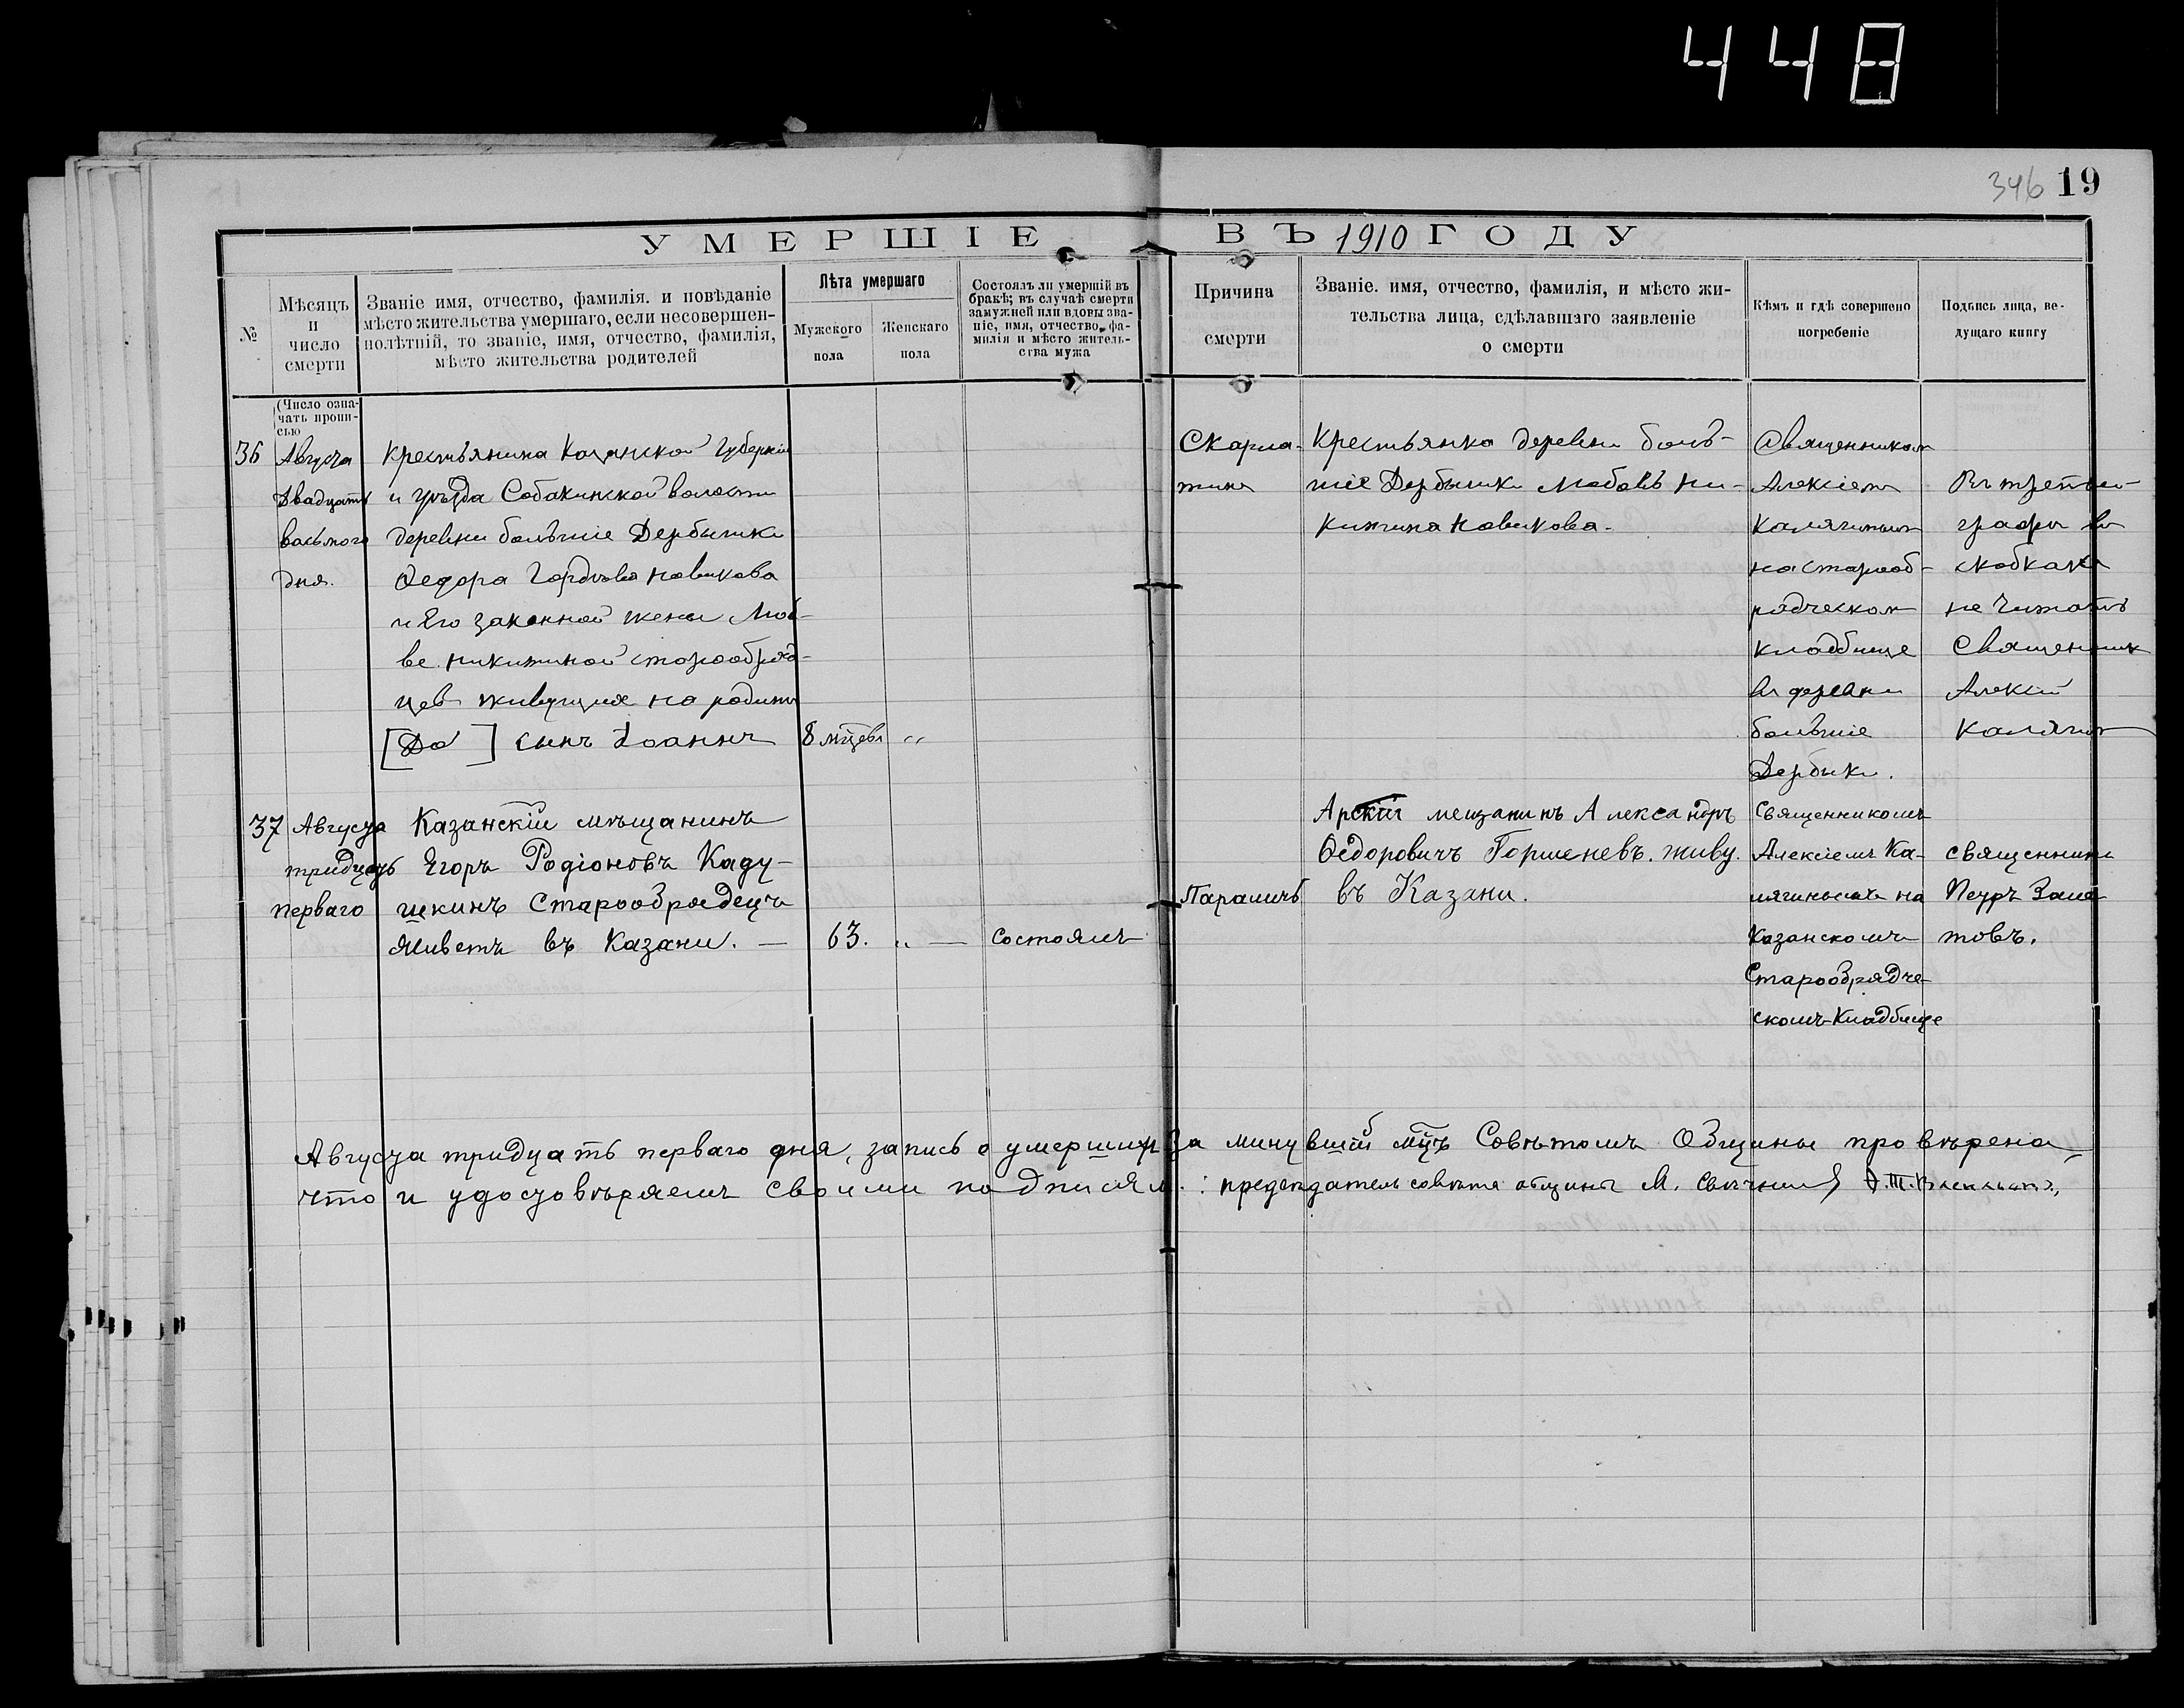 448
346 19
УМЕРШІЕ ВЪ 1910 ГОДУ
№
Мѣсяцъ
и
число
смерти
Званіе имя, отчество, фамилія. и повѣданіе
мѣсто жительства умершаго, если несовершен-
нолѣтній, то званіе, имя, отчество, фамилія,
мѣсто жительства родителей
Лѣта умершаго
Мужского
пола
Женскаго
пола
Состоялъ ли умершій въ
бракѣ; въ случаѣ смерти
замужней или вдовы зва-
ніе, имя, отчество, фа-
милія и мѣсто житель-
ства мужа
Причина
смерти
Званіе. имя, отчество, фамилія, и мѣсто жи-
тельства лица, сдѣлавшэго заявленіе
о смерти
Кѣмъ и гдѣ совершено
погребеніе
Подпись лица, ве-
дущаго книгу
(Число озна-
чать пропи-
сью
36
Августа
Двадцать
восьмого
дня.
Крестьянина Казанской Губерніи
и уѣзда Собакинской волости
деревни большіе Дербышки
Федора Гордѣева Новикова
и Его законной жены Люб-
ве. Никитиной старообряд-
цев живущия на родинѣ
[До] сынъ Іоаннъ
8 мцевъ
"
Скарла-
тина
Крестьянка деревни боль-
шіе Дербышки Любовь Ни-
китина Новикова.
Священником
Алексіем
Калягиным
на старооб-
рядческом
кладбище
в деревни
большіе
Дербыки.
В третьей
графы в
скобках
не Читать
Священник
Алексій
Калягин
37
Августа
тридцать
перваго
Казанскій мѣщанинъ
Егоръ Родіоновъ Каду-
шкинъ Старообрядецъ
Живетъ въ Казани. —
63.
" —
Состоялъ
Параличъ
Арскій мещанинъ Александръ
Федоровичъ Горшеневъ. живу.
въ Казани.
Священникомъ
Алексіемъ Ка-
лягинымъ на
Казанскомъ
Старообрядче-
скомъ Кладбище
священникъ
Петръ Зала-
товъ.
Августа тридцать перваго дня, запись о умерших за минувшій мцъ Совѣтомъ Общины провѣрена
что и удостовѣряемъ своими подписям.: председатель совѣта общины М. Свѣчни